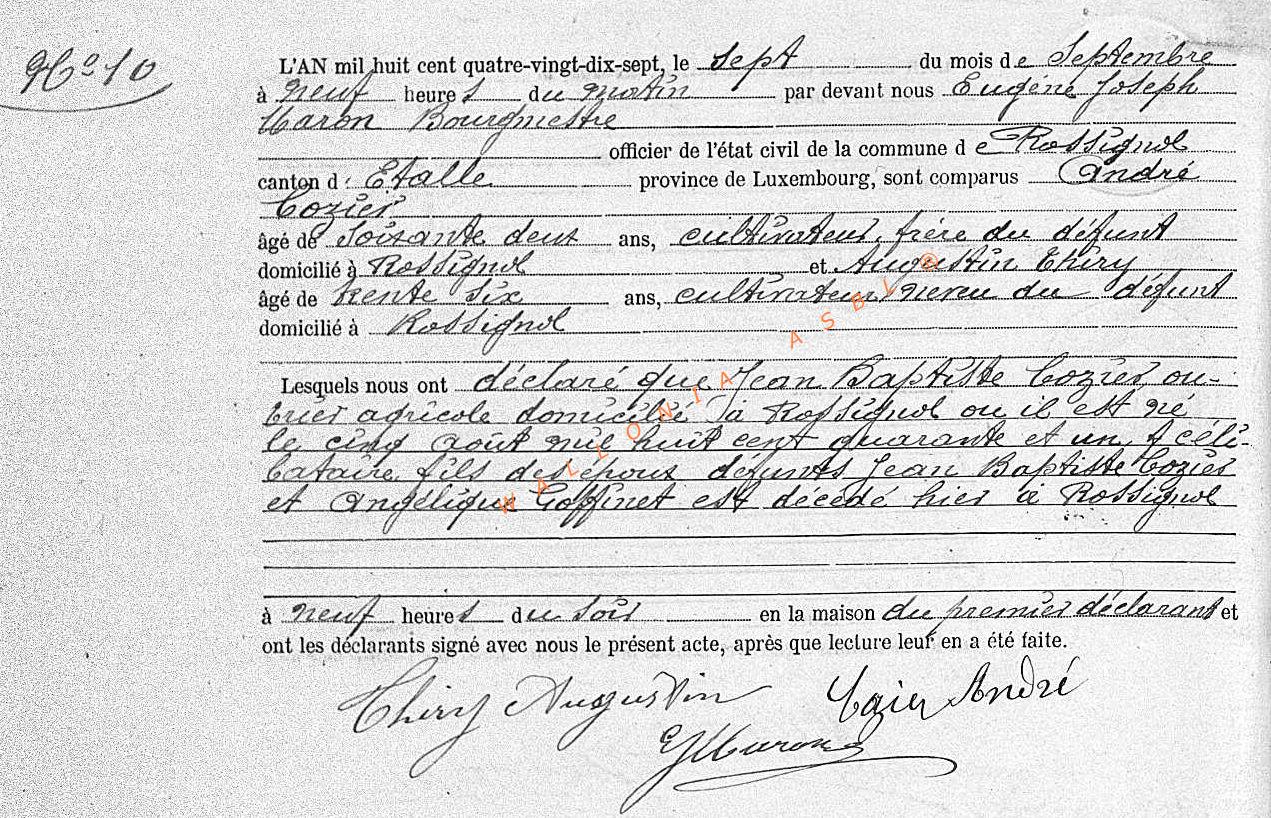 N° 10
L'AN mil huit cent quatre-vingt-dix-sept, le sept du mois de Septembre
à neuf heures du matin par devant nous Eugéne Joseph
Maron Bourgmestre
officier de l'état civil de la commune de Rossignol
canton d' Etalle province de Luxembourg, sont comparus André
Cozier
âgé de soixante deux ans, cultivateur, frére du défunt
domicilié à Rossignol et Augustin Thiry
âgé de trente six ans, cultivateur, neveu du défunt
domicilié à Rossignol
Lesquels nous ont déclaré que Jean Baptiste Cozier, ou-
vrier agricole domicilié à Rossignol ou il est né
le cinq août mil huit cent quarante et un, céli-
bataire, fils des époux défunts Jean Baptiste Cozier
et Angélique Goffinet est décédé hier à Rossignol
à neuf heures du soir en la maison du premier déclarant et
ont les déclarants signé avec nous le présent acte, après que lecture leur en a été faite.
Thiry Augustin Cozier André
EJMaron
WALLONIA ASBL ®